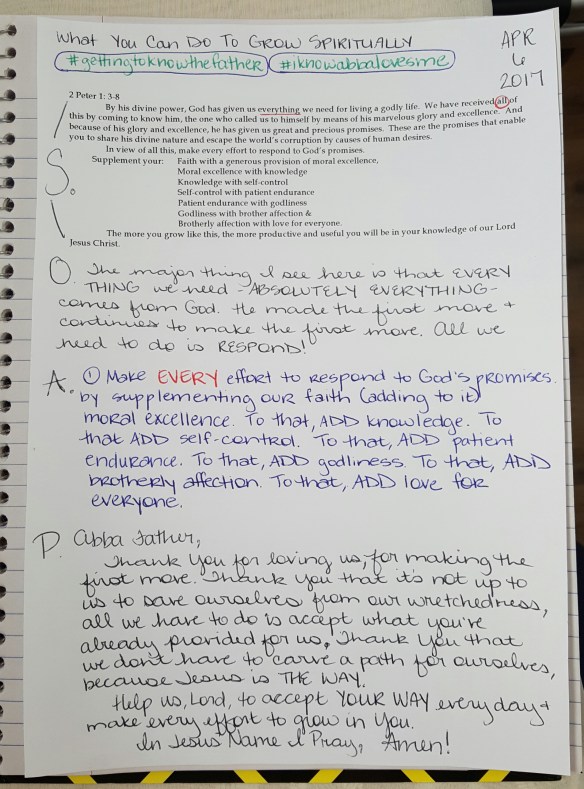 What You Can Do To GROW SPIRITUALLY
APR
6
2017
#gettingtoknowthefather #iknowabbalovesme
S.
2 Peter 1: 3-8
By his divine power, God has given us everything we need for living a godly life. We have received all of
this by coming to know him, the one who called us to himself by means of his marvelous glory and excellence. And
because of his glory and excellence, he has given us great and precious promises. These are the promises that enable
you to share his divine nature and escape the world's corruption by causes of human desires.
In view of all this, make every effort to respond to God's promises.
Supplement your: Faith with a generous provision of moral excellence,
Moral excellence with knowledge
Knowledge with self-control
Self-control with patient endurance
Patient endurance with godliness
Godliness with brother affection &
Brotherly affection with love for everyone.
The more you grow like this, the more productive and useful you will be in your knowledge of our Lord
Jesus Christ.
O. The major thing I see here is that EVERY
THING we need - ABSOLUTELY EVERYTHING -
comes from God. He made the first move +
continues to make the first move. All we
need to do is RESPOND!
A. ① Make EVERY effort to respond to God's promises
by supplementing our faith (adding to it)
moral excellence. To that, ADD knowledge. To
that ADD self-control. To that, ADD patient
endurance. To that, ADD godliness. To that, ADD
brotherly affection. To that, ADD love for
everyone.
P. Abba Father,
Thank You for loving us, for making the
first move. Thank You that it's not up to
us to save ourselves from our wretchedness,
all we have to do is accept what you're
already provided for us. Thank You that
we don't have to carve a path for ourselves,
because Jesus is THE WAY.
Help us, Lord, to accept YOUR WAY every day +
make every effort to grow in You.
In Jesus Name I Pray, Amen!